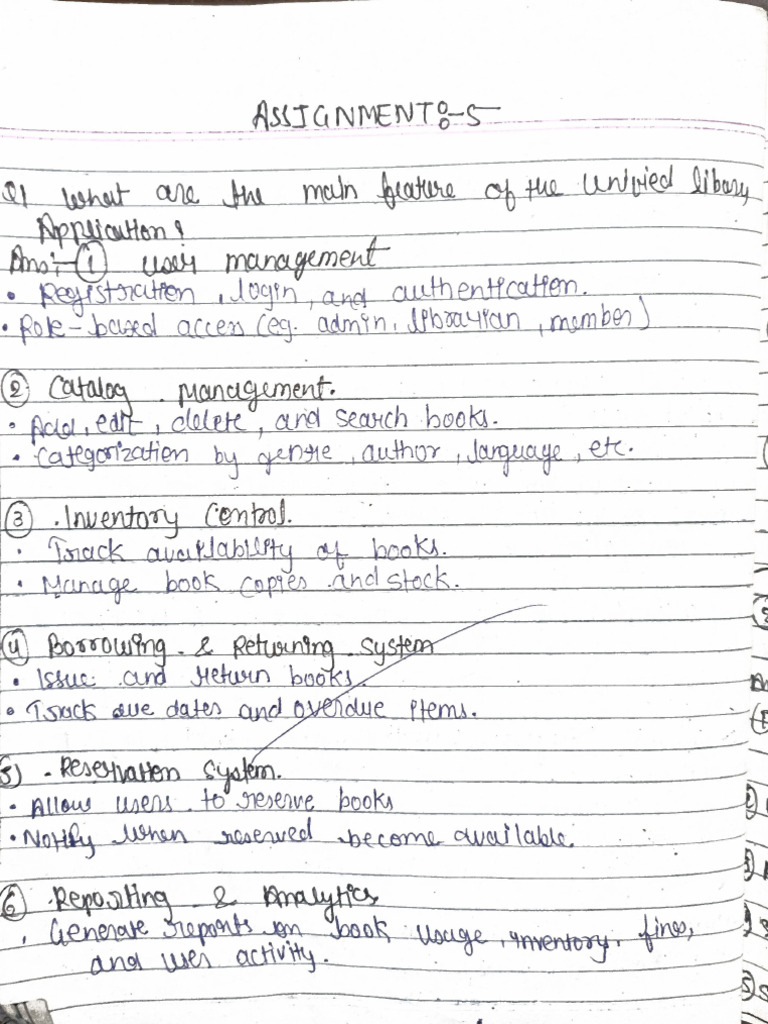 ASSIGNMENT:-5
Q1 What are the main feature of the Unified libary
Application?
Ans:- ① User management
• Registration, login, and authentication.
• Role-based access (eg. admin, librarian, member)
② Catalog Management.
• Add, edit, delete, and search books.
• Categorization by genre, author, language, etc.
③ Inventory Control.
• Track availability of books.
• Manage book copies and stock.
④ Borrowing & Returning System
• Issue and return books.
• Track due dates and overdue items.
5) Reservation System.
• Allow users to reserve books
• Notify when reserved become available.
⑥ Reporting & Analytics
• Generate reports on book usage, inventory, fines,
and user activity.